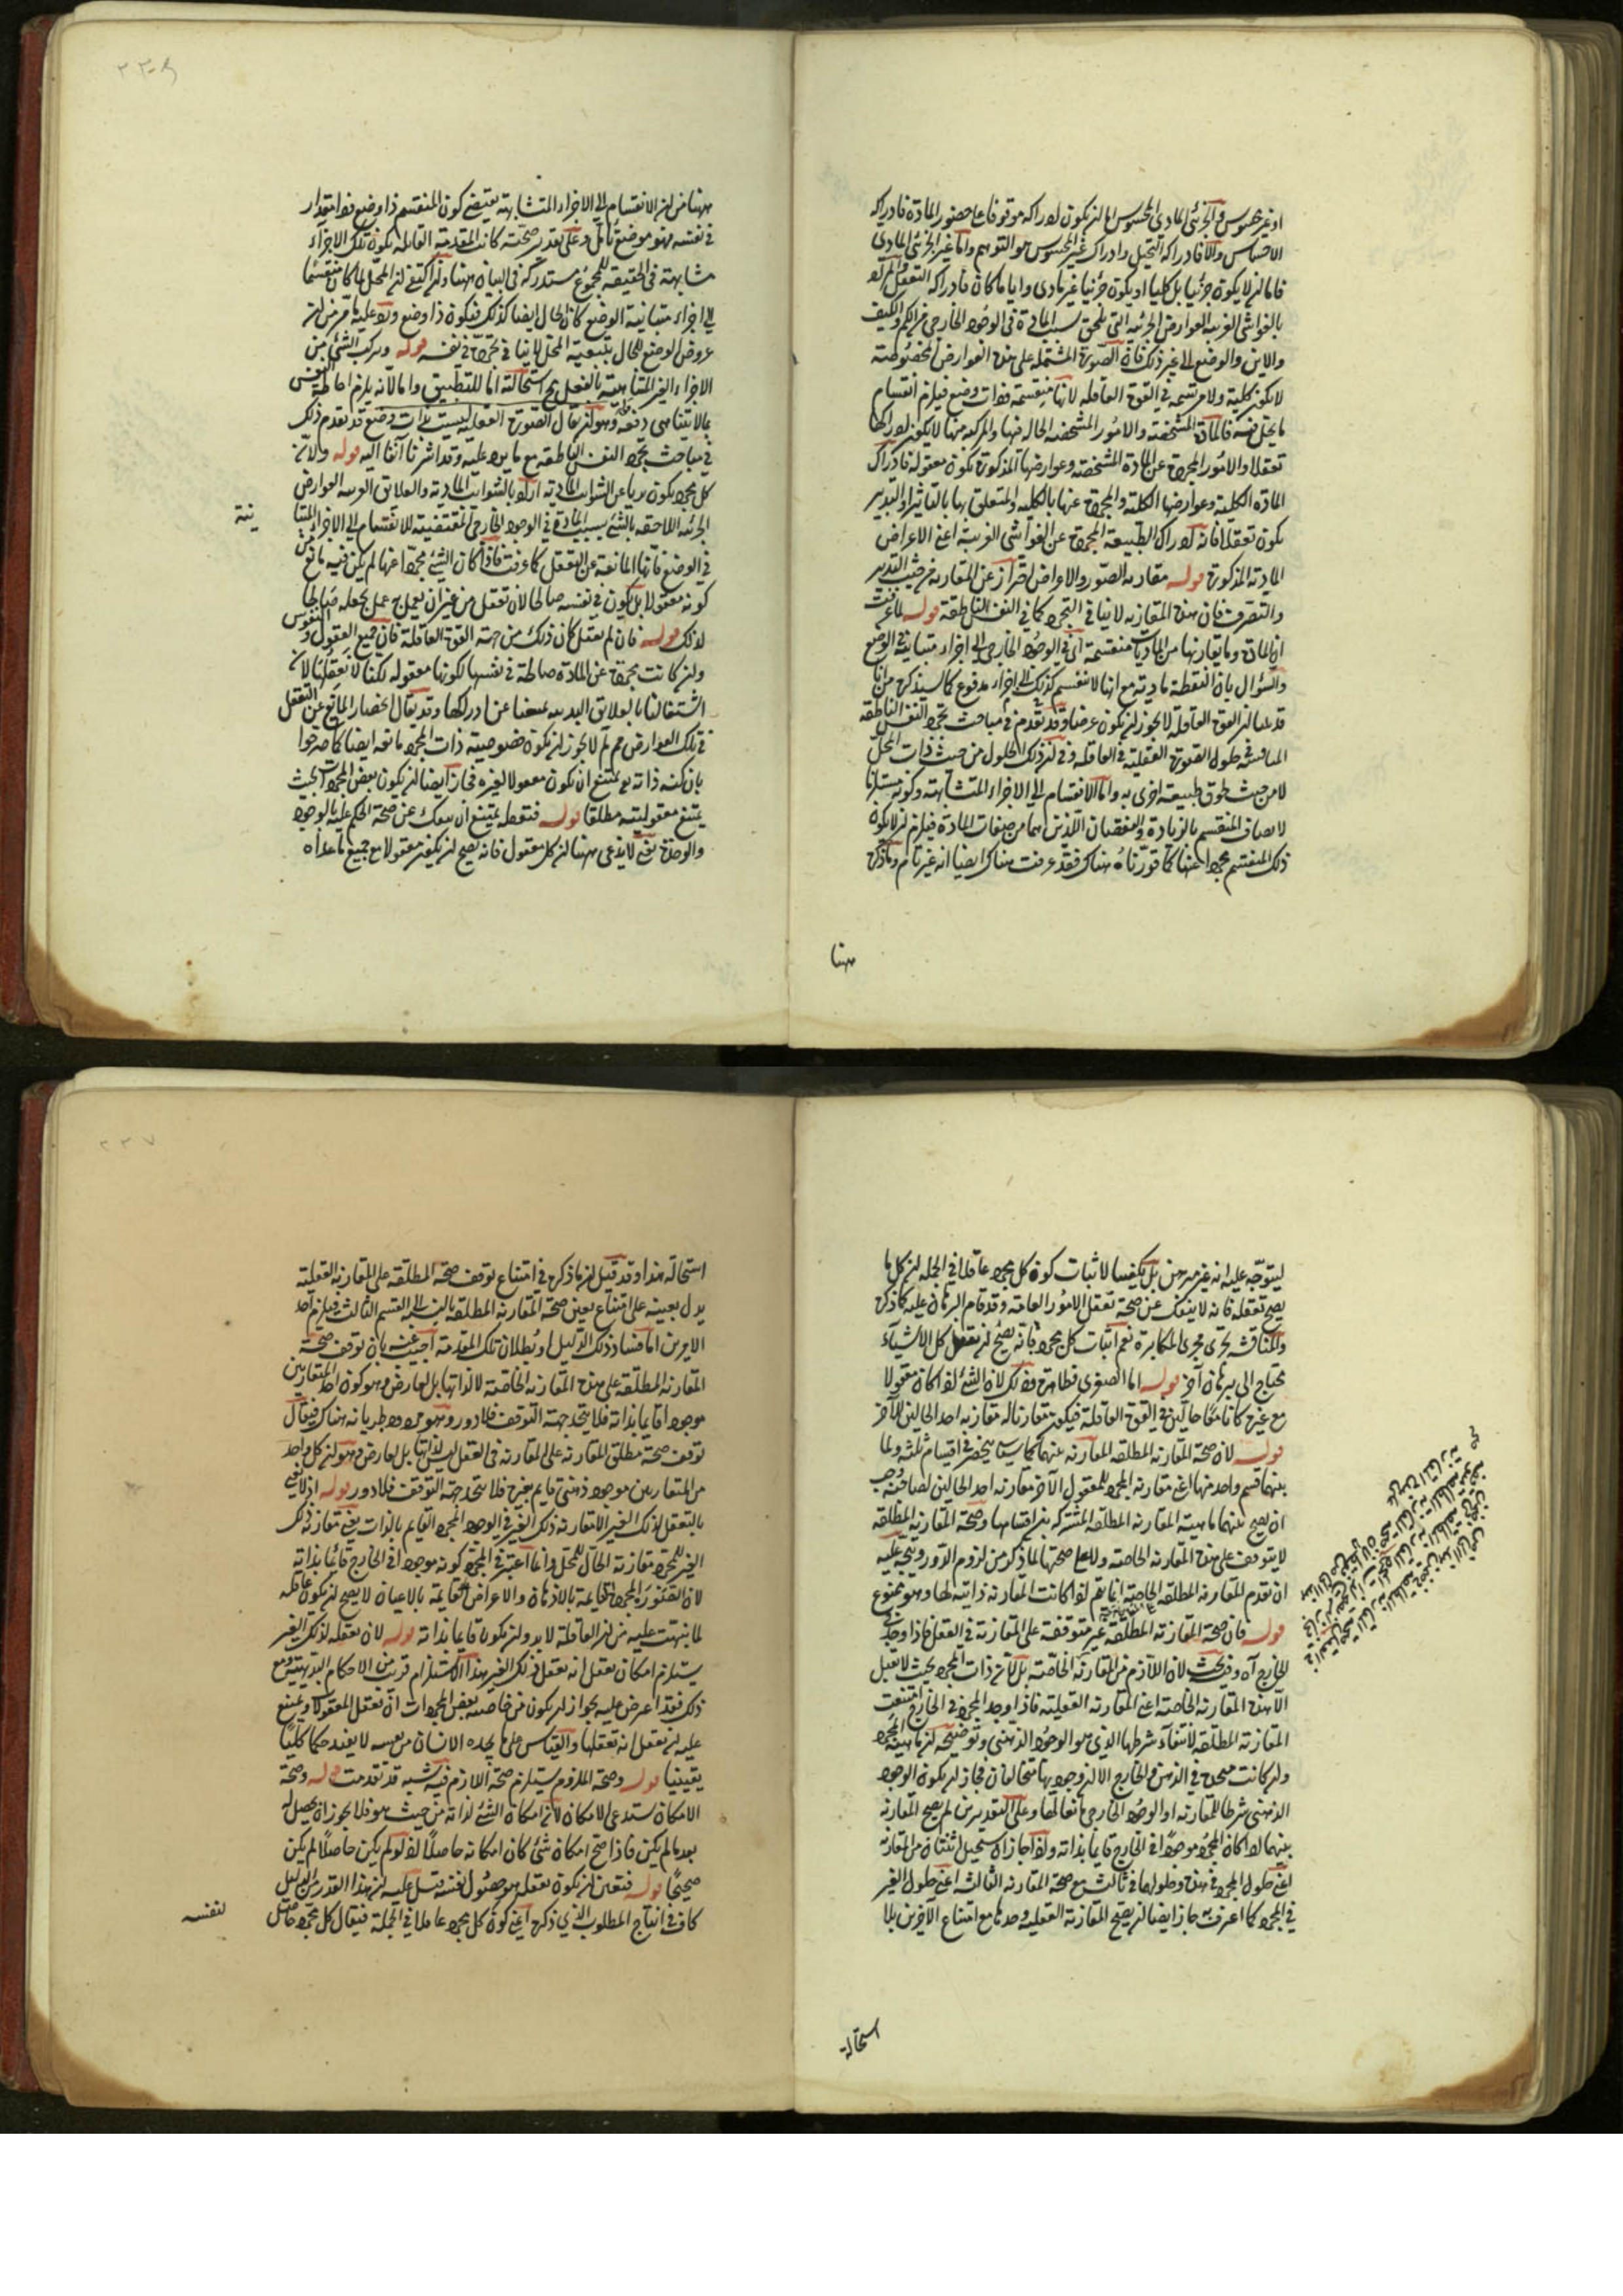 او غير محسوس والجزئى المادى المحسوس اما ان يكون ادراكه موقوفا على حضور المادة فادراكه
الاحساس والا فادراكه التخيل وادراك غير المحسوس هو التوهم واما غير الجزئى المادى
فاما ان لا يكون جزئيا بل كليا او يكون جزئيا غير مادى وايا ما كان فادراكه التعقل
بالغواشى الغريبة العوارض الجزئية التى تلحق بسبب المادة فى الوجود الخارجى من الكم والكيف
والاين والوضع الى غير ذلك فان الصورة المشتملة على هذه العوارض المخصوصة
لا يكون كلية ولا مرتسمة فى القوة العاقلة لانها منقسمة ذوات وضع فيلزم انقسام
ما يحل فيه فالمادة المشخصة والامور المشخصة الحالة فيها والمركبة منها لا يكون ادراكها
تعقلا والامور المجردة عن المادة المشخصة وعوارضها المذكورة تكون معقولة فادراك
المادة الكلية وعوارضها الكلية والمجردة عنها بالكلية والمتعلق بها بالتاثير والتدبير
يكون تعقلا فانه ادراك الطبيعة المجردة عن الغواشى الغريبة اعنى الاعراض
المادية المذكورة قوله مقارنة الصور والاعراض احتراز عن المقارنة من حيث التدبير
والتصرف فان هذه المقارنة لا ينافى التجرد كما فى النفس الناطقة قوله لما عرفت
ان المادة وما يقارنها من الماديات منقسمة اى فى الوجود الخارجى الى اجزاء متباينة فى الوضع
والسؤال بان النقطة مادية مع انها لا تنقسم كذلك الى اجزاء مدفوع كما سيذكره من انا
قد بينا ان القوة العاقلة لا يجوز ان يكون عرضا وقد تقدم فى مباحث تجرد النفس الناطقة
المناقشة فى حلول الصورة العقلية فى العاقلة وفى ان ذلك الحلول من حيث ذات المحل
لا من حيث لحوق طبيعة اخرى به واما الانقسام الى الاجزاء المتشابهة وكونه مستلزما
لاتصاف المنقسم بالزيادة والنقصان اللذين هما من صفات المادة فيلزم ان لا يكون
ذلك المنقسم مجردا عنها كما قررناه هناك فقد عرفت هناك ايضا انه غير تام وما ذكره
ههنا
ههنا من ان الانقسام الى الاجزاء المتشابهة يقتضى كون المنقسم ذا وضع ومقدار
فى نفسه فهو موضع تأمل وعلى تقدير صحته كانت المقدمة القائلة بكون تلك الاجزاء
مشابهة فى الحقيقة للمجموع مستدركة فى البيان ههنا وان اكتفى ان المحل لما كان منقسما
الى اجزاء متباينة الوضع كان الحال ايضا كذلك فيكون ذا وضع ورد عليه ما مر من ان
عروض الوضع للحال بتبعية المحل لا ينافى تجرده فى نفسه قوله وتركب الشئ من
الاجزاء الغير المتناهية بالفعل مح استحالته اما للتطبيق واما لانه يلزم احاطة النفس
بما لا يتناهى دفعة وهو ان يقال الصورة العقلية ليست بذات وضع قد تقدم ذلك
فى مباحث تجرد النفس الناطقة مع ما يرد عليه وقد اشرنا آنفا اليه قوله ولان
كل مجرد يكون بريا عن الشوائب المادية اراد بالشوائب المادية والعلايق الغريبة العوارض
الجزئية اللاحقة بالشئ بسبب المادة فى الوجود الخارجى المقتضية للانقسام الى الاجزاء المتبا
ينة
فى الوضع فانها المانعة عن التعقل كما عرفت فاذا كان الشئ مجردا عنها لم يكن فيه مانع من
كونه معقولا بل يكون فى نفسه صالحا لان تعقل من غير ان يعمل به عمل يجعله صالحا
لذلك قوله فان لم يعقل كان ذلك من جهة القوة العاقلة فان جميع العقول والنفوس
وان كانت مجردة عن المادة صالحة فى نفسها لكونها معقولة لكنا لا نعقلها لان
اشتغالنا بالعلايق البدنية يمنعنا عن ادراكها وقد يقال انحصار المانع عن التعقل
فى تلك العوارض مم لم لا يجوز ان يكون خصوصية ذات المجرد مانعة ايضا كما صرحوا
بان كنه ذاته تع يمتنع ان يكون معقولا لغيره فجاز ايضا ان يكون بعض المجردات بحيث
يمتنع معقوليته مطلقا قوله فتعقله يمتنع ان ينفك عن صحة الحكم عليه بالوجود
والوحدة يعنى لا يدعى ههنا ان كل معقول فانه يصح ان يكون معقولا مع جميع ما عداه
ليتوجه عليه انه غير مبرهن بل يكفينا لاثبات كون كل مجرد عاقلا فى الجملة ان كل ما
يصح تعقله فانه لا ينفك عن صحة تعقل الامور العامة وقد قام البرهان عليه كما ذكره
والمناقشة تجرى مجرى المكابرة نعم اثبات كل مجرد بانه يصح ان يعقل كل الاشياء
محتاج الى برهان آخر قوله اما الصغرى فظاهرة وذلك لان الشئ اذا كان معقولا
مع غيره كانا معا حالين فى القوة العاقلة فيكون مقارنا له مقارنة احد الحالين للآخر
قوله لان صحة المقارنة المطلقة المقارنة بينهما كما سيأتى ينحصر فى اقسام ثلثة ولما
بينهما قسم واحد منها اعنى مقارنة المجرد للمعقول الآخر مقارنة احد الحالين لصاحبه وجب
ان يصح بينهما ماهية المقارنة المطلقة المشتركة بين اقسامها وصحة المقارنة المطلقة
لا يتوقف على هذه المقارنة الخاصة ولا على صحتها لما ذكر من لزوم الدور ويتجه عليه
ان تقدم المقارنة المطلقة الخاصة انما يتم لو كانت المقارنة ذاتية لها وهو ممنوع
قوله فان صحة المقارنة المطلقة غير متوقفة على المقارنة فى العقل فاذا وجد فى
الخارج آه وفيه بحث لان اللازم من المقارنة الخاصة بل لان ذات المجرد بحيث لا يقبل
الا هذه المقارنة الخاصة اعنى المقارنة العقلية فاذا وجد المجرد فى الخارج امتنعت
المقارنة المطلقة لانتفاء شرطها الذى هو الوجود الذهنى وتوضيحه ان ماهية المجرد
وان كانت متحدة فى الذهن والخارج الا ان وجوديها متخالفان فجاز ان يكون الوجود
الذهنى شرطا للمقارنة او الوجود الخارجى مانعا لها وعلى التقديرين لم يصح المقارنة
بينهما اذا كان المجرد موجودا فى الخارج قايما بذاته واذا جاز ان يستحيل اثنتان من المقارنة
اعنى حلول المجرد فى غيره وحلولهما فى ثالث مع صحة المقارنة الثالثة اعنى حلول الغير
فى المجرد كما اعترف به جاز ايضا ان يصح المقارنة العقلية وحدها مع امتناع الآخرين بلا
استحالة
استحالة هذا وقد قيل ان ما ذكره فى امتناع توقف صحة المطلقة على المقارنة العقلية
يدل بعينه على امتناع تعين صحة المقارنة المطلقة بالنسبة الى القسم الثالث فيلزم احد
الامرين اما فساد ذلك الدليل او بطلان تلك المقدمة اجيب عنه بان توقف صحة
المقارنة المطلقة على هذه المقارنة الخاصة لا لذاتها بل لعارض وهو كون احد المتقارنين
موجودا قايما بذاته فلا يتحد جهة التوقف فلا دور وهو مردود بجريانه هناك فيقال
توقف صحة مطلق المقارنة على المقارنة فى العقل ليس لذاتها بل لعارض وهو ان كل واحد
من المتقارنين موجود ذهنى قايم بغيره فلا يتحد جهة التوقف فلا دور قوله اذ لا نعنى
بالتعقل لذلك الغير الا مقارنة ذلك الغير فى الوجود المجرد القايم بالذات يعنى مقارنة ذلك
الغير للمجرد مقارنة الحال للمحل وانما اعتبر فى المجرد كونه موجودا فى الخارج قائما بذاته
لان الصور المجردة القايمة بالاذهان والاعراض القايمة بالاعيان لا يصح ان يكون عاقلة
لما نبهت عليه من ان العاقلة لا بد وان يكون قايما بذاته قوله لان تعقله لذلك الغير
يستلزم امكان تعقل انه تعقل ذلك الغير هذا الاستلزام قريب من الاحكام البديهية ومع
ذلك فقد اعترض عليه بجواز ان يكون من خاصية بعض المجردات ان تعقل المعقولات ويمتنع
عليه ان تعقل انه تعقلها والقياس على ما يجده الانسان من نفسه لا يفيد حكما كليا
يقينيا قوله وصحة الملزوم يستلزم صحة اللازم فيه شبهة قد تقدمت قوله وصحة
الامكان يستدعى الامكان لان امكان الشئ لذاته من حيث هو فلا يجوز ان يحصل له
بعد ما لم يكن فاذا صح امكان شئ كان امكانه حاصلا اذ لو لم يكن حاصلا لم يكن
صحيحا قوله فتعين ان يكون تعقله هو حصول نفسه قيل عليه ان هذا القدر من الدليل
كاف فى انتاج المطلوب الذى ذكره اعنى كون كل مجرد عاقلا فى الجملة فيقال كل مجرد حاصل
لنفسه